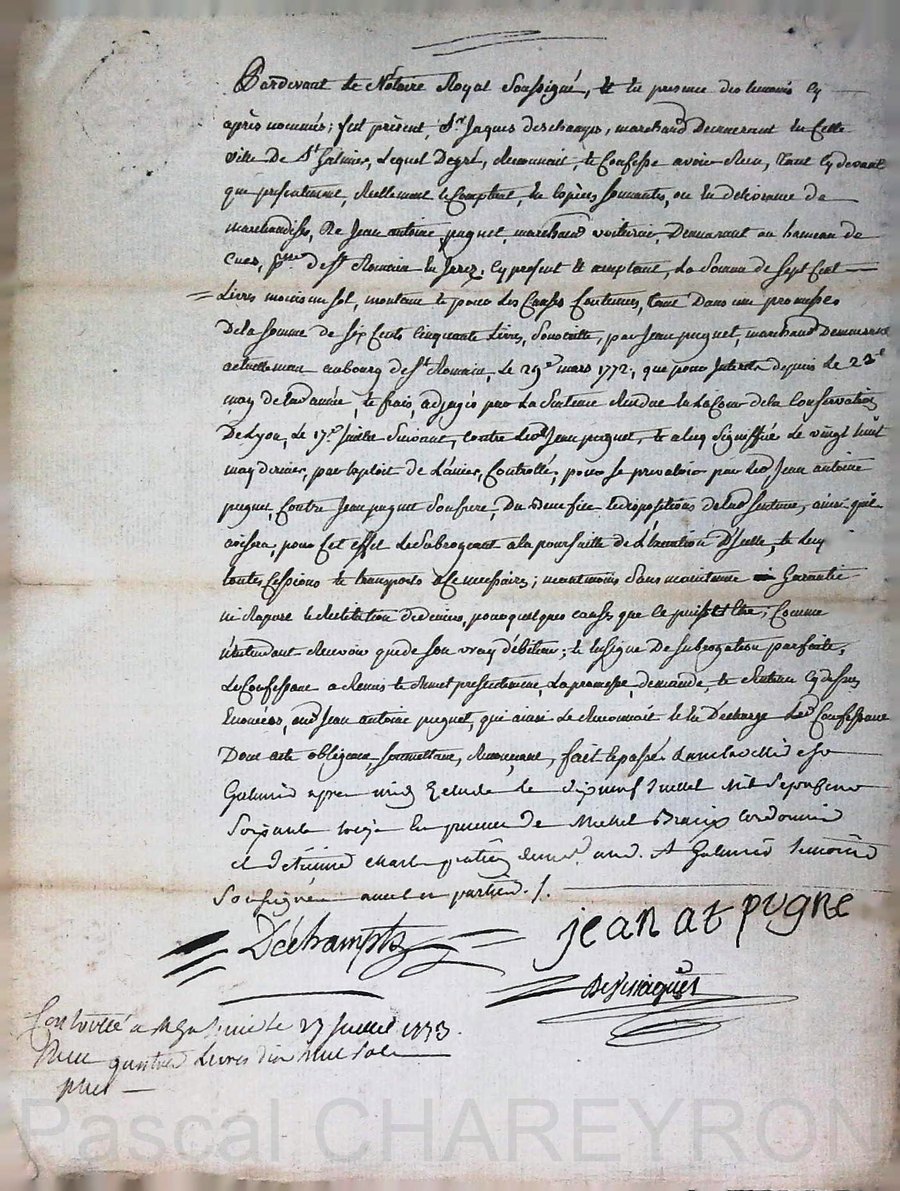 Pardevant Le Notaire Royal Soussigné, & En presence des temoins Cy
après nommés; fut présent, Sr. Jaques deschamps, marchand Demeurant En Cette
ville De St. Galmier, Lequel Degré, Reconnait, & Confesse avoir Reçu, tant Cy devant
que presentement, Réellement & Comptant, En Espèces Sonnantes, ou En délivrance de
marchandises, De Jean antoine puguet, marchand voiturier, Demeurant au hameau de
parsse. de St. Romain En Jerez, Cy présent & acceptant, La Somme de Sept Cent
Livres moins un sol, montant & pour Les Causes Contenues, tant Dans une promesse
De la somme de six Cents Cinquante Livres, Souscrite, par Jean puguet, marchand Demeurant
actuellement au bourg de St. Romain, Le 29e. mars 1772, que pour Interets depuis Le 23e.
may de lad. année, & frais, adjugés par La Sentence Rendue En La Cour de la Conservation
De Lyon, Le 17e. Juillet Suivant, Contre Led. Jean puguet, & a luy Signiffiée Le vingt huit
may dernier, par Exploit de Controllé, pour Se prevaloir par Led. Jean antoine
puguet, Contre Jean puguet Son frere, Du Benefice & dispositions de lad. Sentence, ainsi qu'il
avisera, pour Cet effet Le Subrogeant a la poursuitte de L'Execution D'Icelle, & Luy
toutes Cessions & transports néCessaires; neantmoins Sans maintenue ni Garantie
ni & Restitution de deniers, pour quelques causes que Ce puisse Etre; Comme
n'entendant Recevoir que de Son vray débiteur; & En Signe De Subrogation parfaite,
Le Confessant a Remis & Remet présentement, La promesse demande, & Sentence Cy dessus
Enoncées, aud. Jean antoine puguet, qui ainsi Le Reconnait & En Décharge Led. Confessant
Dont acte obligeant, Soumettant, Renonçant, fait & passé aud. St
Galmier apres midy Etude Le dix neuf Juillet Mil Sept Cent
Soixante treize En presence de Michel Cordonnier
et d'Etienne Charle praticien demts. aud. St Galmier temoins
Soussignés avec les parties ./.
Déchampts
jean at pugne
Controllé a St Galmier le 27 Juillet 1773.
Reçu quatre Livres dix neuf Sols